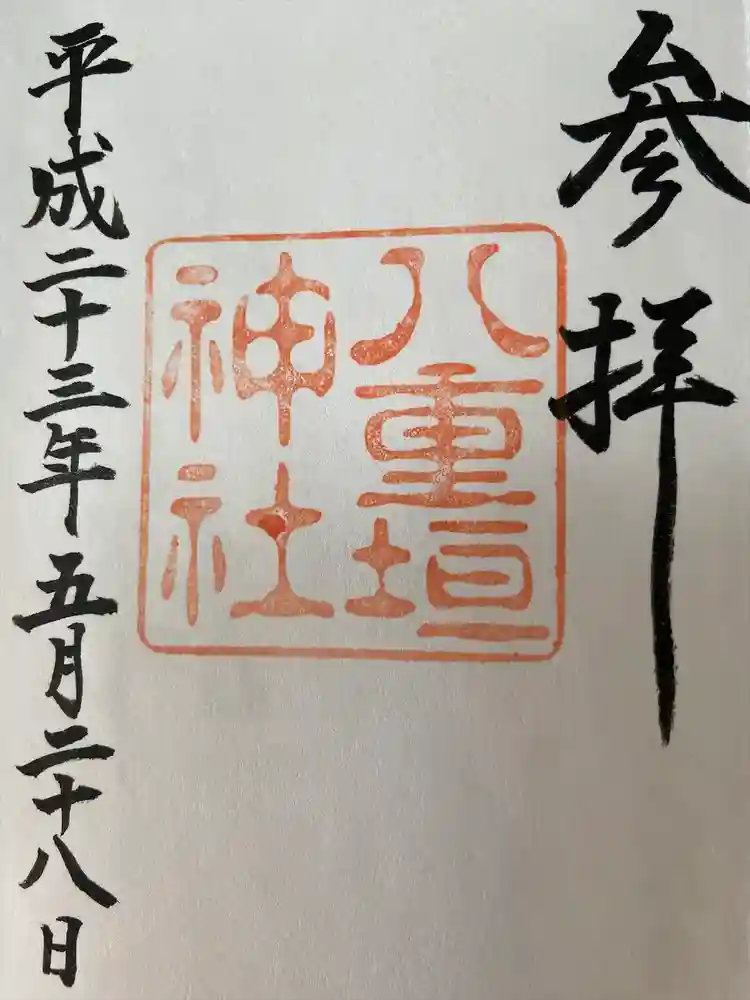 參拝
八重垣
神社
平成二十三年五月二十八日